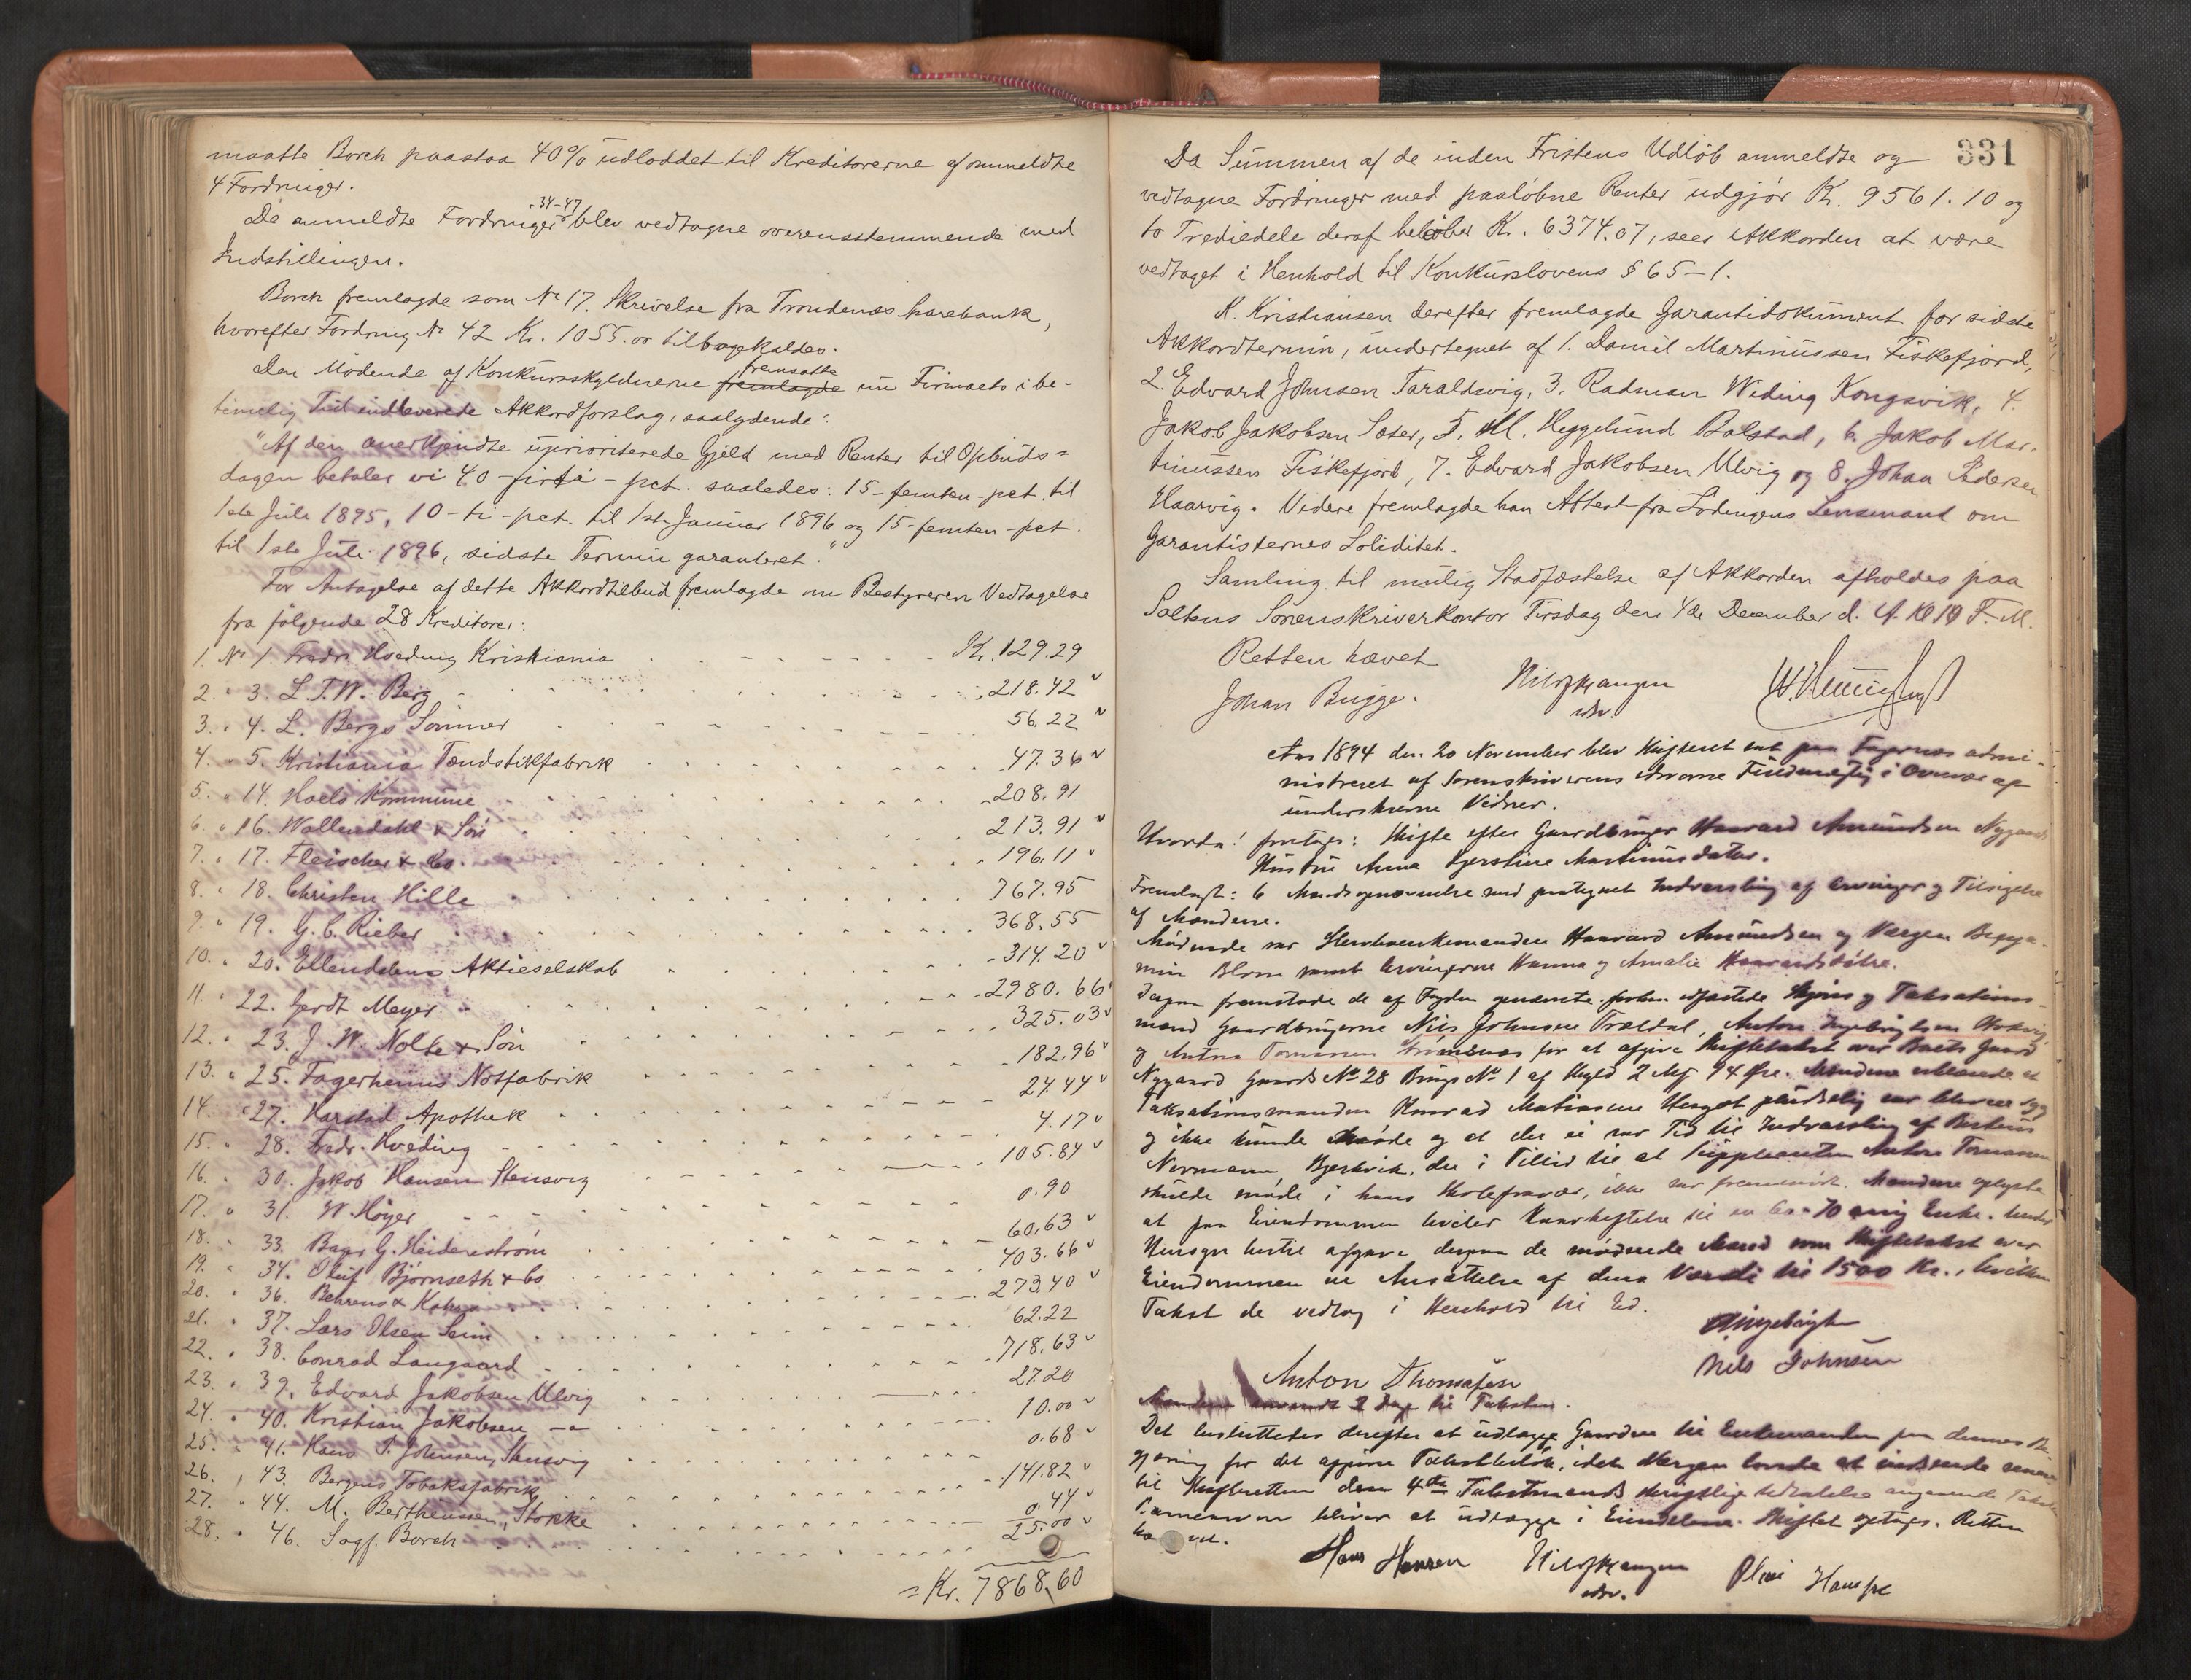 maatte Borch paastaa 40% udloddet til Kreditorerne af anmeldte
4 Fordringer.
De anmeldte Fordringer 34-47 blev vedtagne overensstemmende med
Indstillingen.
Borch fremlagde som No 17. Skrivelse fra Trondenæs Sparebank,
hvorefter Fordring No 42 Kr. 1055.00 tilbagekaldes.
Den Mødende af Konkursskyldnerne fremlagde fremsatte nu Firmaets i be-
timelig Tid indleverede Akkordforslag, saalydende:
"Af den anerkjendte uprioriterede Gjeld med Renter til Opbuds-
dagen betaler vi 40 - firti - pct. saaledes: 15 - femten - pct. til
1ste Juli 1895, 10 - ti - pct. til 1ste Januar 1896 og 15 - femten - pct.
til 1ste Juli 1896, sidste Termin garanteret."
For Antagelse af dette Akkordtilbud fremlagde nu Bestyreren Vedtagelse
fra følgende 28 Kreditorer:
1. No 1. Fredr. Hveding Kristiania Kr. 129.29
2. " 3. L. T. W. Berg 218.42
3. " 4. L. Bergs Sønner 56.22
4. " 5. Kristiania Tændstikfabrik 47.36
5. " 14. Hoels Kommune 208.91
6. " 16. Wallendahl & Søn 213.91
7. " 17. Fleischer & Co. 196.11
8. " 18. Christen Hille 767.95
9. " 19. G. C. Rieber 368.55
10. " 20. Ellendalens Aktieselskab 314.20
11. " 22. Gerdt Meyer 2980.66
12. " 23. J. W. Nolte & Søn 325.03
13. " 25. Fagerheims Notfabrik 182.96
14. " 27. Harstad Apothek 24.44
15. " 28. Fredr. Hveding 4.17
16. " 30. Jakob Hansen Stensvig 105.84
17. " 31. W. Høyer 0.90
18. " 33. Bager G. Heidenstrøm 60.63
19. " 34. Oluf Bjørnseth & Co 403.66
20. " 36. Behrens & 273.40
21. " 37. Lars Olsen 62.22
22. " 38. Conrad Langaard 718.63
23. " 39. Edvard Jakobsen Ulvig 27.20
24. " 40. Kristian Jakobsen 10.00
25. " 41. Hans P. Johnsen, Stensvig 0.68
26. " 43. Bergens Tobaksfabrik 141.82
27. " 44. M. Bertheussen, Stokke 0.44
28. " 46. Sagf. Borch 25.00
= Kr. 7868.60
331
Da Summen af de inden Fristens Udløb anmeldte og
vedtagne Fordringer med paaløbne Renter udgjør Kr. 9561.10 og
to Trediedele deraf beløber Kr. 6374.07, sees Akkorden at være
vedtaget i Henhold til Konkurslovens § 65-1.
K. Kristiansen derefter fremlagde Garantidokument for sidste
Akkordtermin, undertegnet af 1. Daniel Martinussen Fiskefjord,
2. Edvard Johnsen Taraldsvig, 3. Radman Weding Kongsvik, 4.
Jakob Jakobsen Sæter, 5. M. Heggelund Bolstad, 6. Jakob Mar-
tinussen Fiskefjord, 7. Edvard Jakobsen Ulvig og 8. Johan Pedersen
Haarvig. Videre fremlagde han Attest fra Lødingens Lensmand om
Garantisternes Soliditet.
Samling til mulig Stadfæstelse af Akkorden afholdes paa
Saltens Sorenskriverkontor Tirsdag den 4de December d. A. Kl 10 F.M.
Retten hævet
Johan Bugge.
Aar 1894 den 20 November blev Skifteret sat paa Fagernæs admi-
nistreret af Sorenskriverens edsvorne Fuldmægtig i Overvær af
underskrevne Vidner.
Hvorda! foretoges: Skifte efter Gaardbruger Haavard Amundsen Nygaards
Hustru Anna Kjerstine Martinusdatter.
Fremlagt: 6 Mandsopnævnelse med paategnet Indvarsling af Arvinger og Tilsigelse
af Mændene.
Mødende var Stervboenkemanden Haavard Amundsen og Værgen Benja-
min Blom samt Arvingerne Hanna og Amalie Haavardsdøtre.
Derpaa fremstode de af Fogden opnævnte forhen edfæstede Skjøns og Taksations-
mænd Gaardbrugerne Nils Johnsen Trældal, Anton Ingebrigtsen
og Anton Tomassen for at afgive Skiftetakst over Boets Gaard
Nygaard Gaards No 28 Brugs No 1 af Skyld 2 Mk 94 Øre. Mændene erklærede at
Taksationsmanden Konrad Matiassen pludselig var bleven syg
og ikke kunde møde og at der ei var Tid til Indvarsling af
Normann, Bjerkvik, der i Tillid til at Suppleanten Anton Tomassen
skulde møde i hans Stelefravær, ikke var fremmødt. Mændene oplyste
at paa Eiendommen hviler Kaarheftelse til en ca. 70 aarig Enke. Under
Hensyn hertil afgave derpaa de mødende Mænd som Skiftetakst over
Eiendommen en Ansættelse af dens Værdi til 1500 Kr., hvilken
Takst de vedtog i Henhold til Ed.
Nils Johnsen
Anton Thomassen
Mændene anvendt 2 Dage til Taksten.
Det besluttedes derefter at udlægge Gaarden til Enkemanden paa dennes Be-
gjæring for det opgivne Takstbeløb, idet Værgen lovede at indsende senere
til Skifteretten den 4de Takstmands skriftlige Udtalelse angaaende Taksten
bliver at udlægge i Eiendelene. Skiftet optages. Retten
hævet.
Hans Hansen